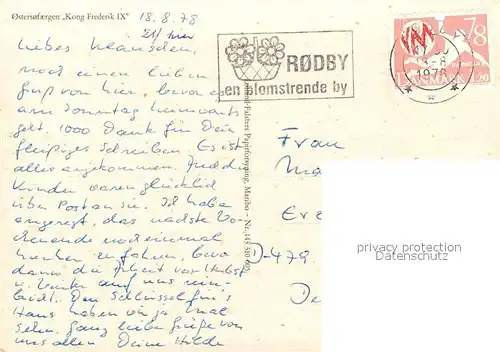 Østersøfærgen „Kong Frederik IX"
18.8.78
Liebes Mausden,
noch einen lieben
Gruß von hier, bevor es
am Sonntag heimwärts
geht. 1000 Dank für Dein
fleißiges Schreiben. Es ist
alles angekommen. Auch die
Kinder waren glücklich
über Post an sie. Ich habe
angeregt, das nächste Wo-
chenende noch einmal
hierher zu fahren, bevor
dann die Arbeit von Herbst
u. Winter auf uns rein-
bricht. Den Schlüssel für's
Haus haben wir ja mal
sehen. Ganz liebe Grüße von
uns allen Deine Hilde
RØDBY
en blomstrende by
78
1978
DANMARK
120
Falsters Papirforsyning, Maribo - Nr. 145 510 605
Frau
Ma
Er
D-479
De
privacy protection
ansichtskarten-center